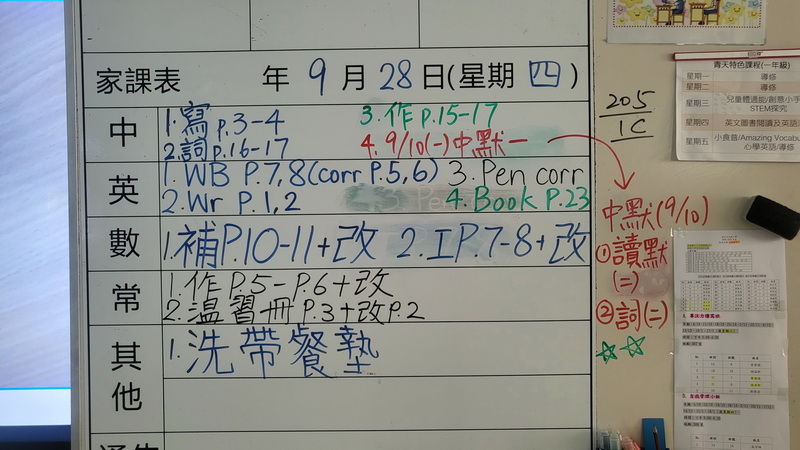 家課表 年 9 月 28 日(星期 四 )
中 1. 寫 p.3-4 3. 作 p.15-17
2. 詞 p.16-17 4. 9/10(一)中默一
英 1. WB P.7,8(corr P.5,6) 3. Pen corr
2. Wr P.1,2 4. Book P.23
數 1. 補P.10-11+改 2. 工P.7-8+改
常 1. 作 P.5-P.6+改
2. 温習冊 P.3+改P.2
其他 1. 洗帶餐墊
205
1C
中默(9/10)
①讀默
(二)
②詞(二)
青天特色課程(一年級)
星期一 導修
星期二 導修
星期三 兒童體適能/創意小手
STEM探究
星期四 英文圖書閱讀及英語
星期五 小良音/Amazing Vocabu
心學英語/導修